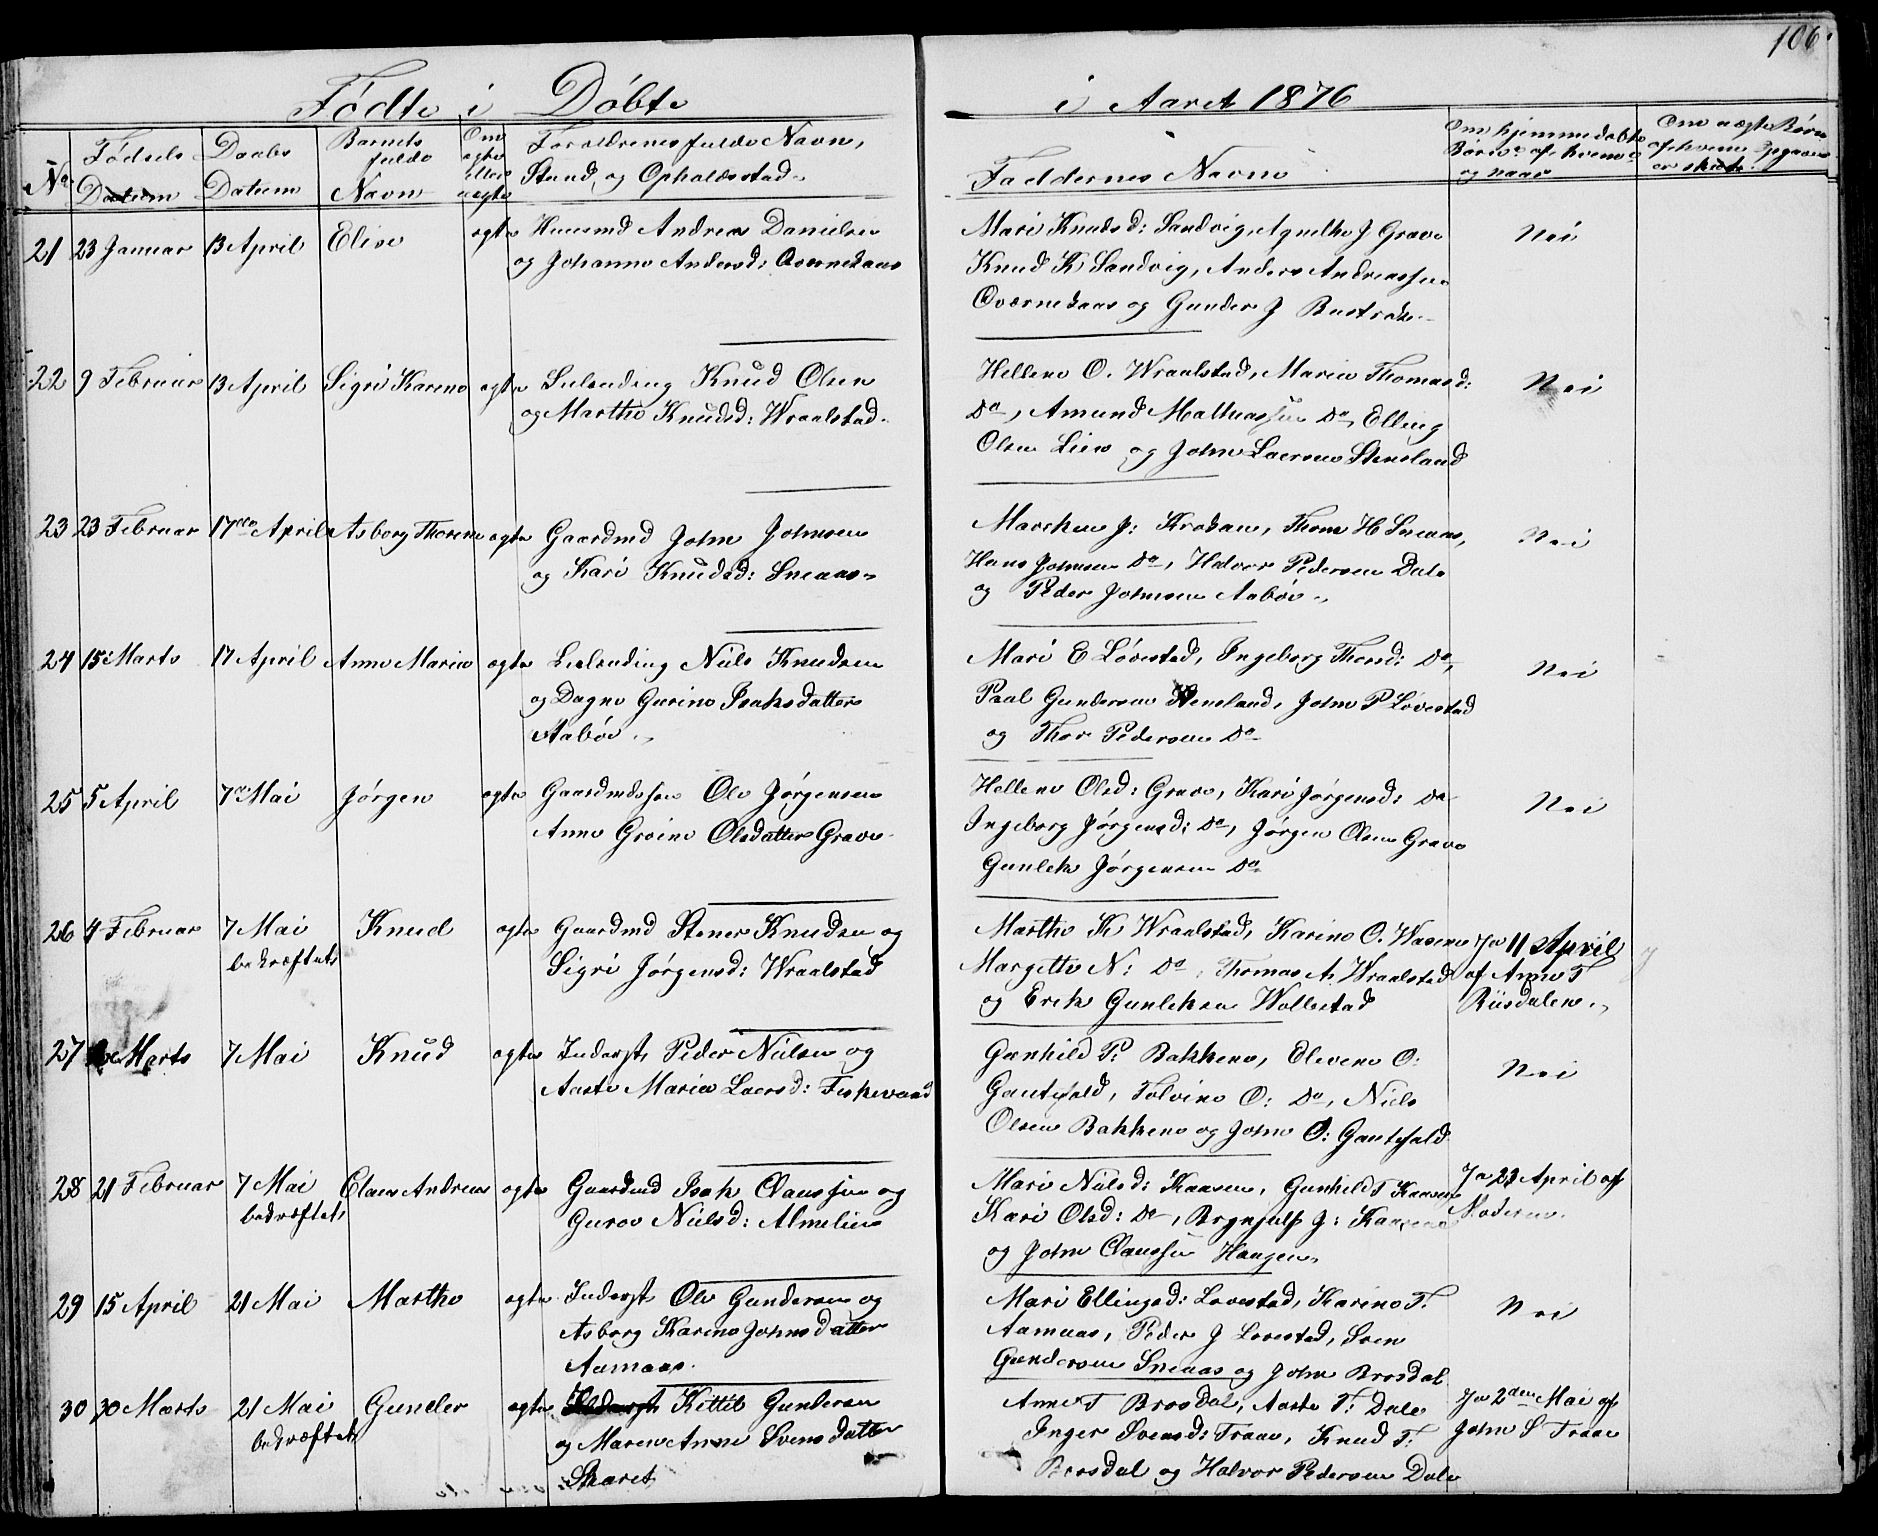 106.
Fødte i Døbte i Aaret 1876
No
Fødsels Datum
Daabs Datum
Barnets fulde Navn
Om ægte eller uægte
Forældrenes fulde Navn, Stand og Opholdsstad.
Faddernes Navne
Om hjemmedøbte Børn: af hvem og naar
Om uægte Børn
er skeet.
21 23 Januar 13 April Elise ægte Huusmd Andreas Danielsen
og Johanne Andersd:
Mari Knudsd: Sandvig, Agnethe J Grave
Knud K Sandvig, Anders Andreassen
og Gunder J
Nei
22 9 Februar 13 April Sigri Karine ægte Leilending Knud Olsen
og Marthe Knudsd: Wraalstad.
Hellene O. Wraalstad, Maria Thomasd:
Do, Amund Mathiassen Do, Elling
Olsen Lien og John Laersen Stensland
Nei
23 23 Februar 17 April Asborg Thorine ægte Gaardmd John Johnsen
og Kari Knudsd: Sneaas.
Marchen J: Thom H Sneaas,
Hans Johnsen Do, Halvor Pedersen Dale
og Peder Johnsen Aabøe.
Nei
24 15 Marts 17 April Anne Marie ægte Leilending Niels Knudsen
og Dagne Gurine Isaksdatter
Aabøe.
Mari E Lövestad, Ingeborg Thorsd: Do,
Paal Gundersen Stensland, John P Lövestad
og Thor Pedersen Do
Nei
25 5 April 7 Mai Jørgen ægte Gaardmdssøn Ole Jørgensen
Anne Groine Olsdatter Grave
Hellene Olsd: Grave, Kari Jørgensd: Do
Ingeborg Jørgensd: Do, Jørgen Olsen Grave
Gunlek Jørgensen Do
Nei
26 4 Februar 7 Mai Knud ægte Gaardmd Stener Knudsen og
bekræftet
Sigri Jørgensd: Wraalstad
Marthe K Wraalstad, Karine O.
Margette N: Do, Thomas A. Wraalstad
og Erik Gunleksen Wollestad
Ja 11 April
af Anne T
Riisdalen.
27 Marts 7 Mai Knud ægte Inderst Peder Nielsen og
Aaste Maria Laersd: Fiskevand
Gunhild P: Bakkene, Olevine O:
Gautefald, Tolvine O: Do, Niels
Olsen Bakkene og John O: Gautefald
Nei
28 21 Februar 7 Mai Claus Andreas ægte Gaardmd Isak Claussen og
bekræftet,
Gurov Nielsd: Almelien
Mari Nielsd: Kaasen, Gunhild T Kaasen
Kari Olsd: Do, Brynjulf J: Kaasene
og John Claussen Haugen.
Ja 23 April af
Moderen.
29 15 April 21 Mai Marthe ægte Inderst Ole Gundersen og
Asborg Karine Johnsdatter
Aamaas.
Mari Ellingsd: Lovestad, Karine T.
Aamaas, Peder J Lovestad, Sven
Gundersen Sneaas og John Brosdal
Nei
30 30 Marts 21 Mai Gunder ægte Kittil Gundersen
bekræftet
og Maren Anne Svensdatter
Skaret
Anne T Brosdal, Aaste T: Dale
Inger Svensd: Traae, Knud T:
Brosdal og Halvor Pedersen Dale
Ja 2den Mai af
John S Traae